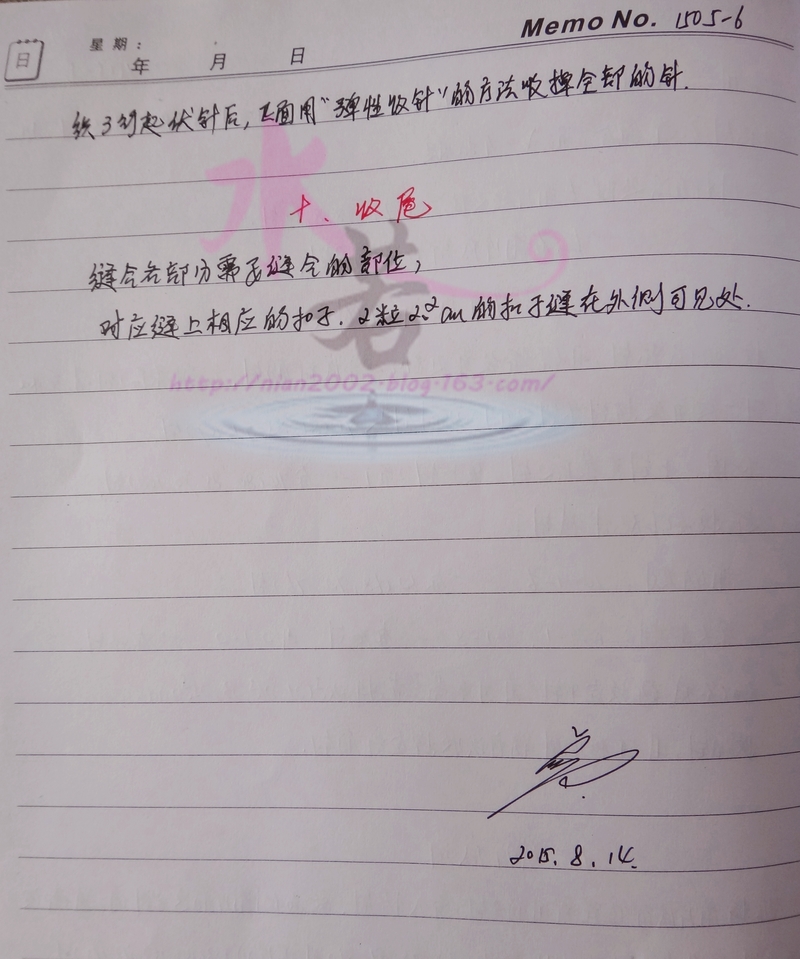 日
星期:
年 月 日
Memo No. 1505-6
织3行起伏针后,正面用“弹性收针”的方法收掉全部的针.
十、收尾
缝合各部分需要缝合的部位;
对应缝上相应的扣子.2粒 cm的扣子缝在外侧可见处.
水若
http://nian2002.blog.163.com/
2015.8.14.